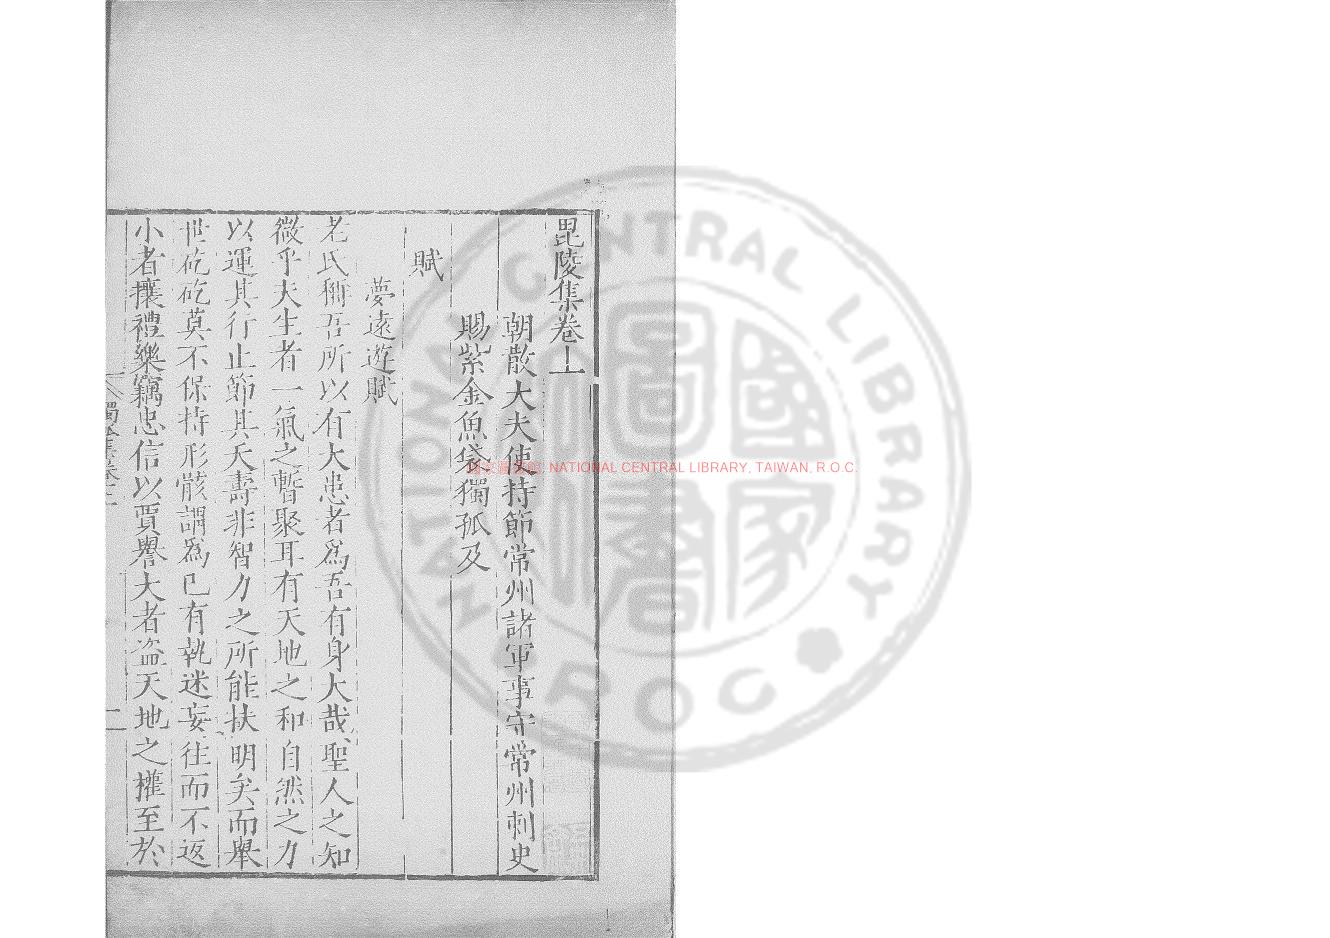 毘陵集卷上
朝散大夫使持節常州諸軍事守常州刺史
賜紫金魚袋獨孤及
賦
夢遠遊賦
老氏稱吾所以有大患者爲吾有身大哉聖人之知
微乎夫生者一氣之暫聚耳有天地之和自然之力
以運其行止節其夭壽非智力之所能扶明矣而舉
世矻矻莫不保持形骸謂爲己有執迷妄往而不返
小者攘禮樂竊忠信以賈譽大者盜天地之權至於
國家圖書館 NATIONAL CENTRAL LIBRARY, TAIWAN, R.O.C.
NATIONAL CENTRAL LIBRARY
ROC
國家圖書館